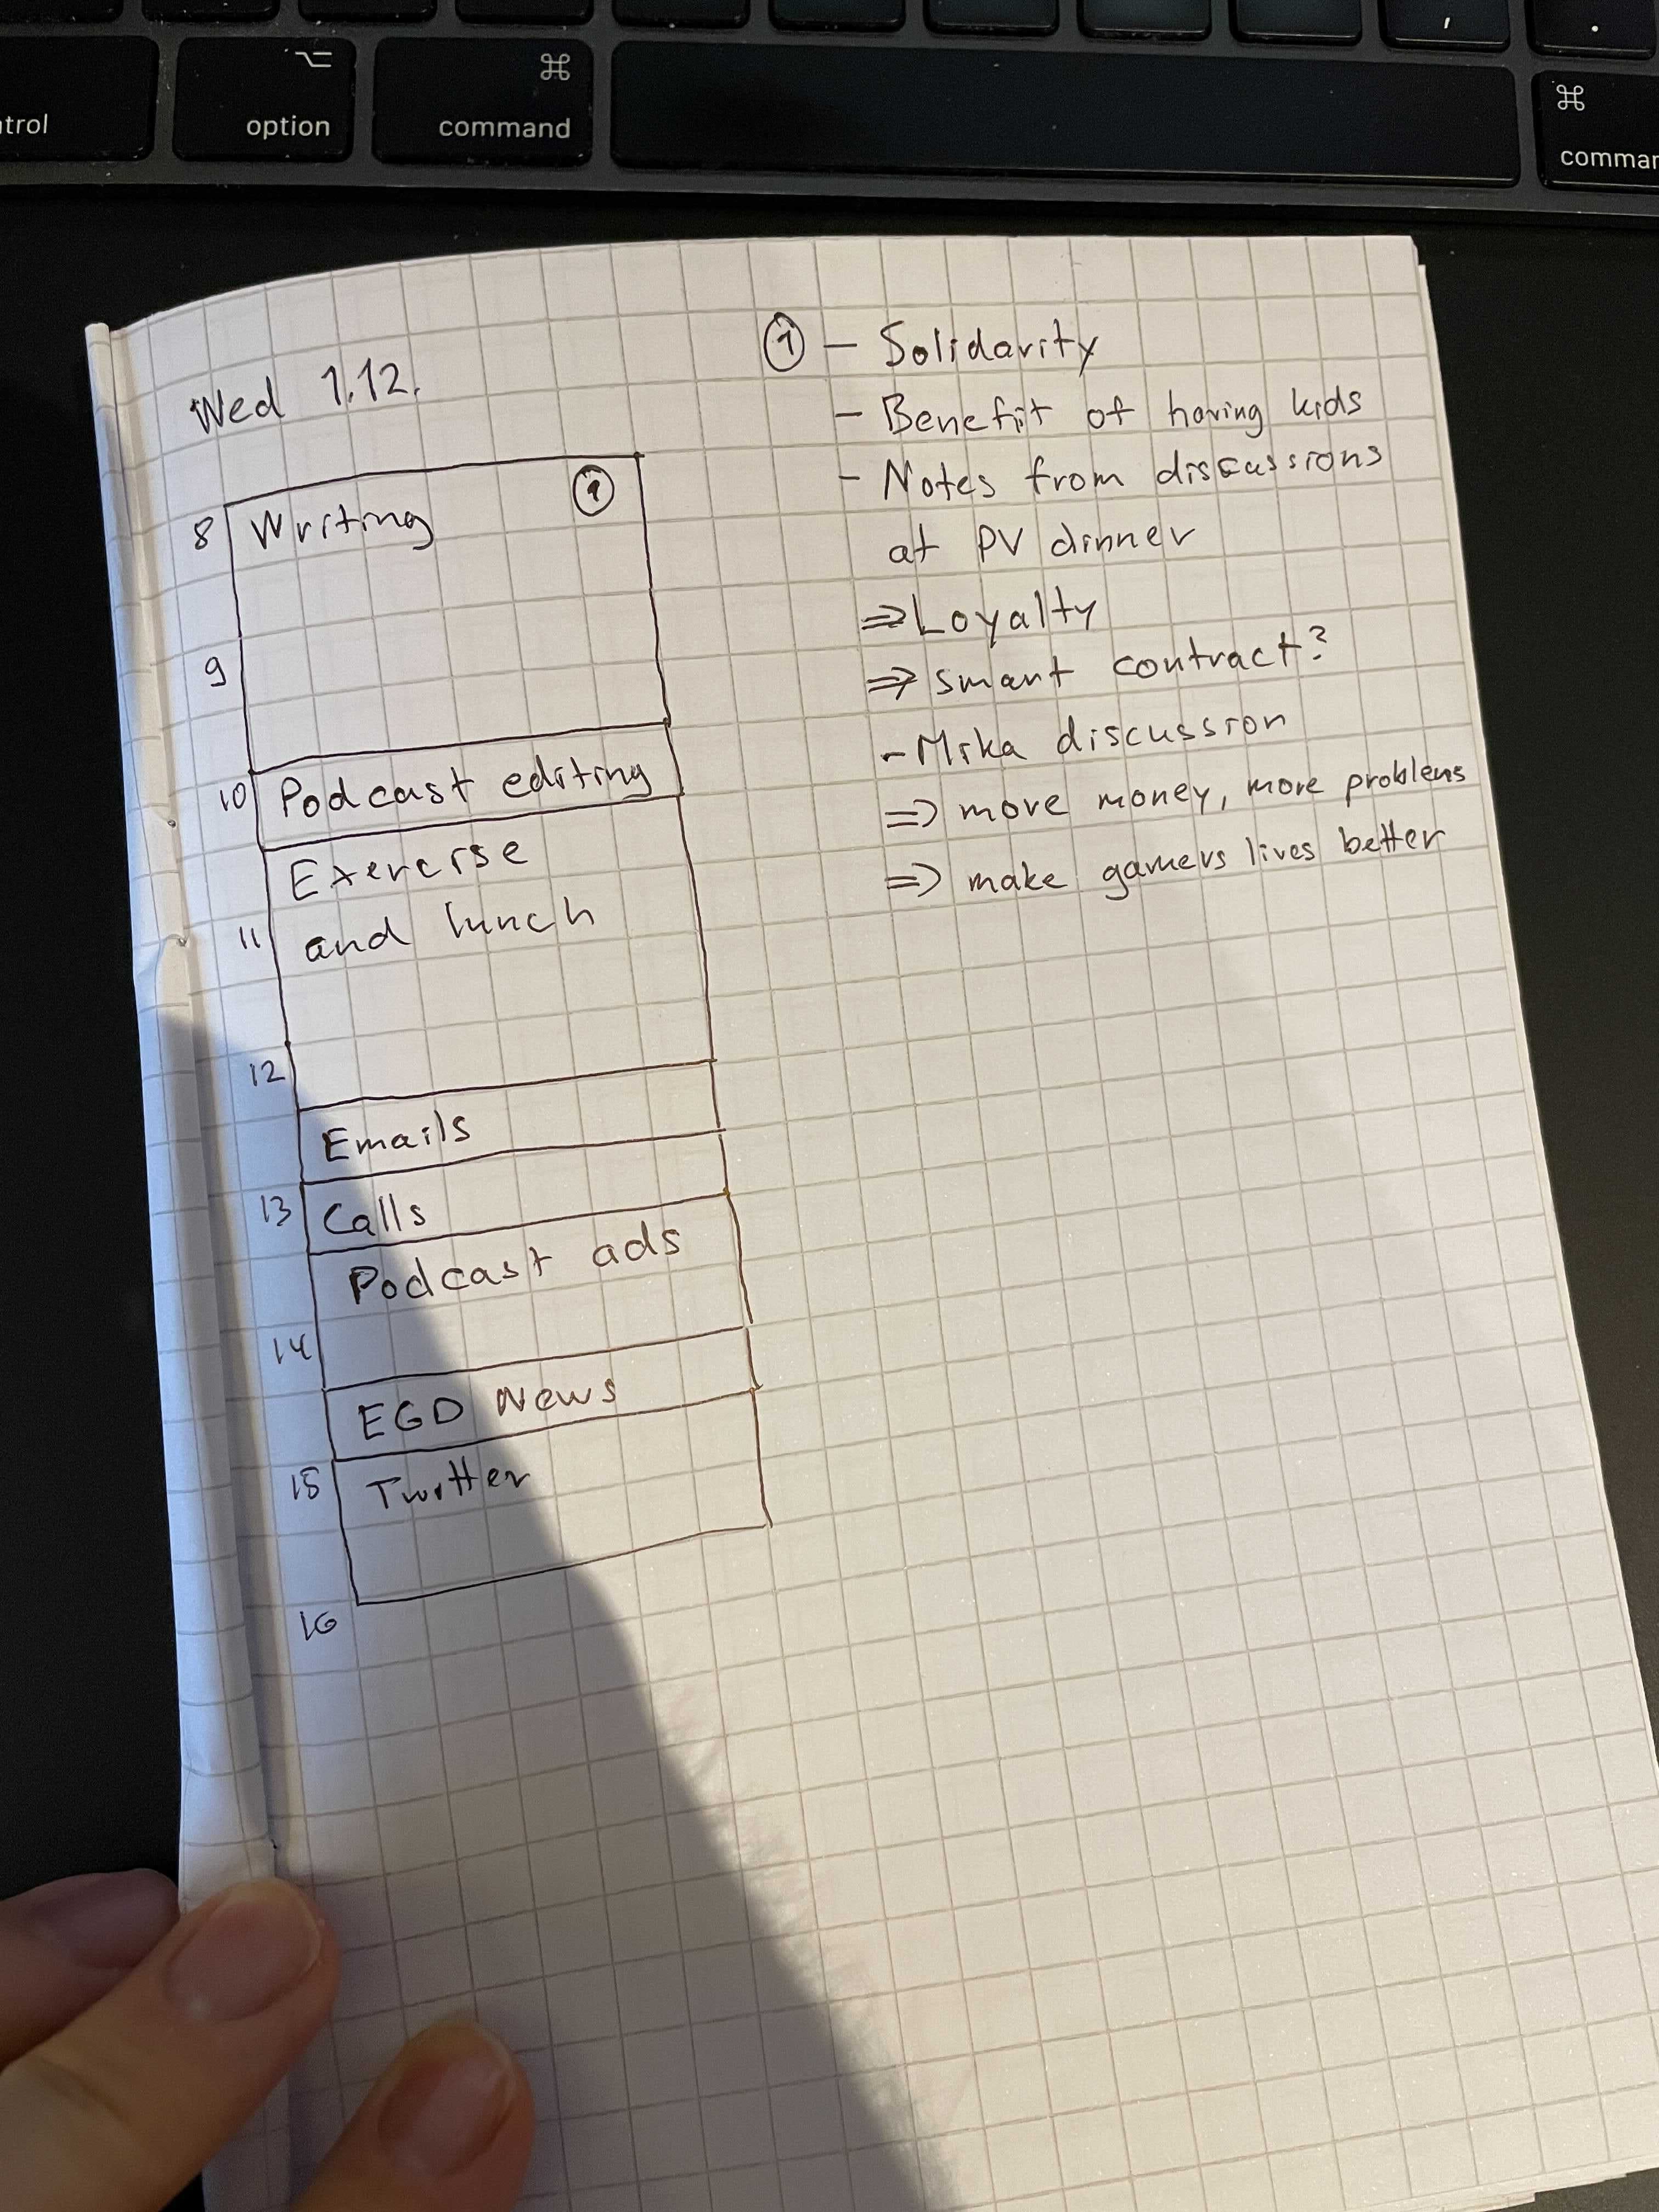 ,
.
⌥
⌘
⌘
ntrol
option
command
comman
Wed 1.12.
8 Writing ①
9
10 Podcast editing
Exercise
11 and lunch
12
Emails
13 Calls
Podcast ads
14
EGD News
15 Twitter
16
① – Solidarity
– Benefit of having kids
– Notes from discussions
at PV dinner
⇒ Loyalty
⇒ smart contract?
– Mika discussion
⇒ more money, more problems
⇒ make gamers lives better